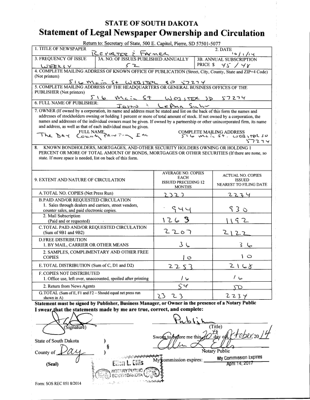 STATE OF SOUTH DAKOTA
Statement of Legal Newspaper Ownership and Circulation
Return to: Secretary of State, 500 E. Capitol, Pierre, SD 57501-5077
1. TITLE OF NEWSPAPER
Reporter & Farmer
2. DATE
10/1/14
3. FREQUENCY OF ISSUE
WEEKLY
3A. NO. OF ISSUES PUBLISHED ANNUALLY
52
3B. ANNUAL SUBSCRIPTION
PRICE $ 45 / 48
4. COMPLETE MAILING ADDRESS OF KNOWN OFFICE OF PUBLICATION (Street, City, County, State and ZIP+4 Code) (Not printers)
516 Main St WEBSTER SD 57274
5. COMPLETE MAILING ADDRESS OF THE HEADQUARTERS OR GENERAL BUSINESS OFFICES OF THE PUBLISHER (Not printers)
516 Main St WEBSTER SD 57274
6. FULL NAME OF PUBLISHER:
7. OWNER (If owned by a corporation, its name and address must be stated and list on the back of this form the names and
addresses of stockholders owning or holding 1 percent or more of total amount of stock. If not owned by a corporation, the
names and addresses of the individual owners must be given. If owned by a partnership or other unincorporated firm, its name
and address, as well as that of each individual must be given.
FULL NAME
The Day County Printing Co
COMPLETE MAILING ADDRESS
516 Main St. WEBSTER SD
57274
8. KNOWN BONDHOLDERS, MORTGAGES, AND OTHER SECURITY HOLDERS OWNING OR HOLDING 1
PERCENT OR MORE OF TOTAL AMOUNT OF BONDS, MORTGAGES OR OTHER SECURITIES (If there are none, so
state. If more space is needed, list on back of this form.
9. EXTENT AND NATURE OF CIRCULATION
AVERAGE NO. COPIES
EACH
ISSUED PRECEDING 12
MONTHS
ACTUAL NO. COPIES
ISSUED
NEAREST TO FILING DATE
A.TOTAL NO. COPIES (Net Press Run)
2323
2234
B.PAID AND/OR REQUESTED CIRCULATION
1. Sales through dealers and carriers, street vendors,
counter sales, and paid electronic copies.
944
930
2. Mail Subscription
(Paid and or requested)
1263
1192
C.TOTAL PAID AND/OR REQUESTED CIRCULATION
(Sum of 9B1 and 9B2)
2207
2122
D.FREE DISTRIBUTION
1. BY MAIL, CARRIER OR OTHER MEANS
36
36
2. SAMPLES, COMPLIMENTARY AND OTHER FREE
COPIES
10
10
E. TOTAL DISTRIBUTION (Sum of C, D1 and D2)
2253
2168
F. COPIES NOT DISTRIBUTED
1. Office use, left over, unaccounted, spoiled after printing
16
16
2. Return from News Agents
54
50
G.TOTAL (Sum of E, F1 and F2 - Should equal net press run
shown in A)
2323
2234
Statement must be signed by Publisher, Business Manager, or Owner in the presence of a Notary Public
I swear that the statements made by me are true, correct, and complete:
(Signature)
Publisher
(Title)
State of South Dakota
County of Day
Sworn to before me this day of October 14
Notary Public
(Seal)
NOTARY PUBLIC
SOUTH DAKOTA
My commission expires
My Commission Expires
April 14, 2017
Form: SOS REC 051 8/2014